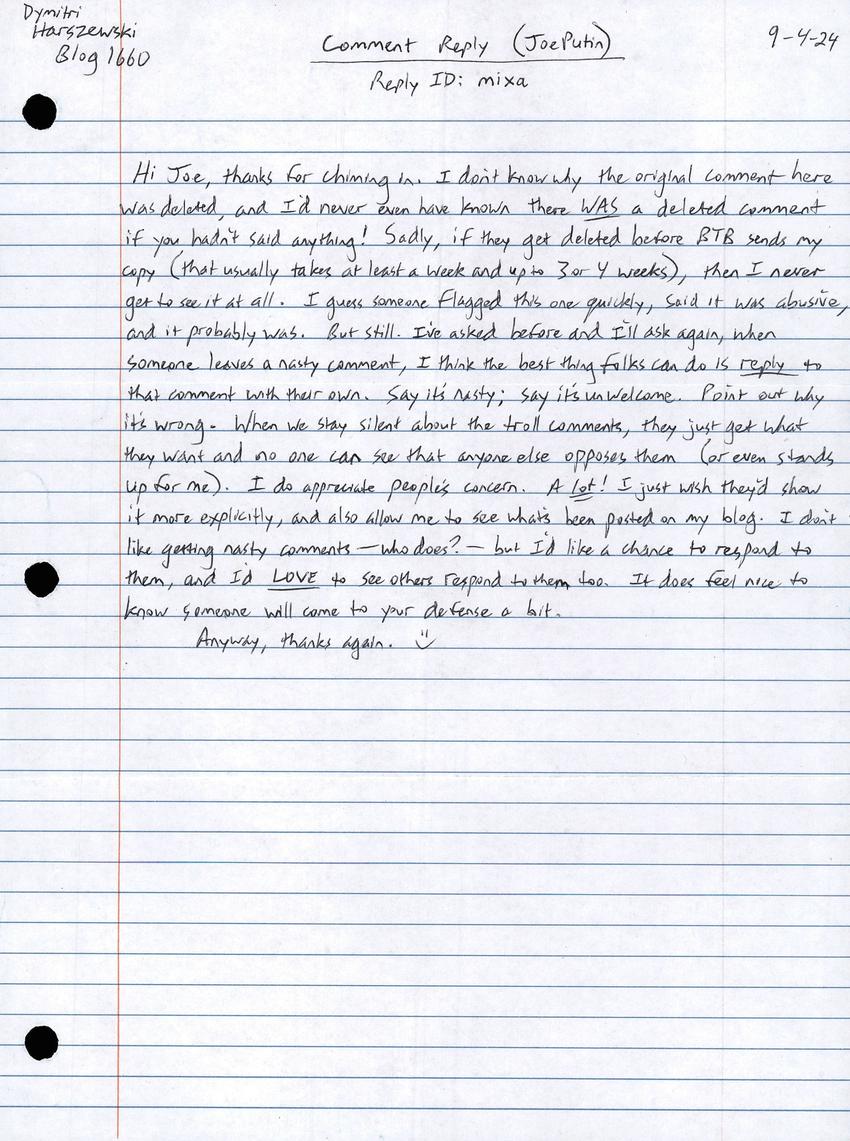 Dymitri
Harszewski
Blog 1660
Comment Reply (JoePutin)
9-4-24
Reply ID: mixa
Hi Joe, thanks for chiming in. I don't know why the original comment here
was deleted, and I'd never even have known there WAS a deleted comment
if you hadn't said anything! Sadly, if they get deleted before BTB sends my
copy (that usually takes at least a week and up to 3 or 4 weeks), then I never
get to see it at all. I guess someone flagged this one quickly, said it was abusive,
and it probably was. But still. I've asked before and I'll ask again, when
someone leaves a nasty comment, I think the best thing folks can do is reply to
that comment with their own. Say it's nasty; say it's unwelcome. Point out why
it's wrong. When we stay silent about the troll comments, they just get what
they want and no one can see that anyone else opposes them (or even stands
up for me). I do appreciate people's concern. A lot! I just wish they'd show
it more explicitly, and also allow me to see what's been posted on my blog. I don't
like getting nasty comments — who does? — but I'd like a chance to respond to
them, and I'd LOVE to see others respond to them too. It does feel nice to
know someone will come to your defense a bit.
Anyway, thanks again.